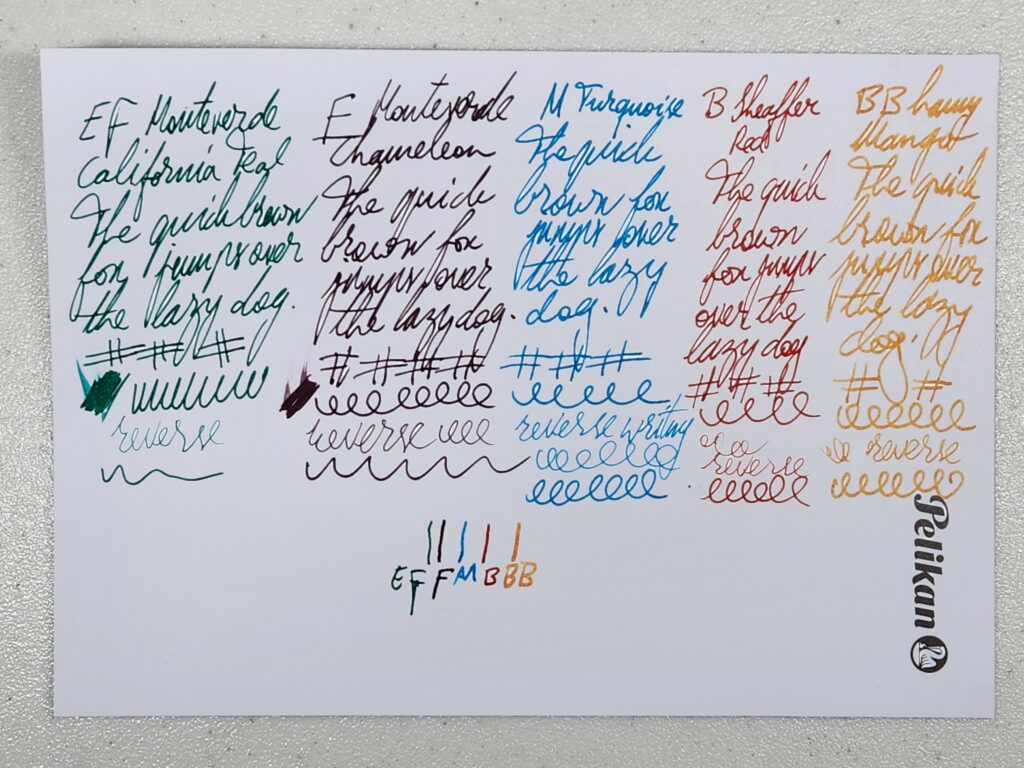 EF Monteverde
California Teal
The quick brown
fox jumps over
the lazy dog.
###
reverse
F Monteverde
Chameleon
The quick
brown fox
jumps over
the lazy dog.
####
reverse
M Turquoise
The quick
brown fox
jumps over
the lazy
dog.
###
reverse writing
B Sheaffer
Red
The quick
brown
fox jumps
over the
lazy dog
###
reverse
BB
Mango
The quick
brown fox
jumps over
the lazy
dog.
# #
reverse
EF F M B BB
Pelikan